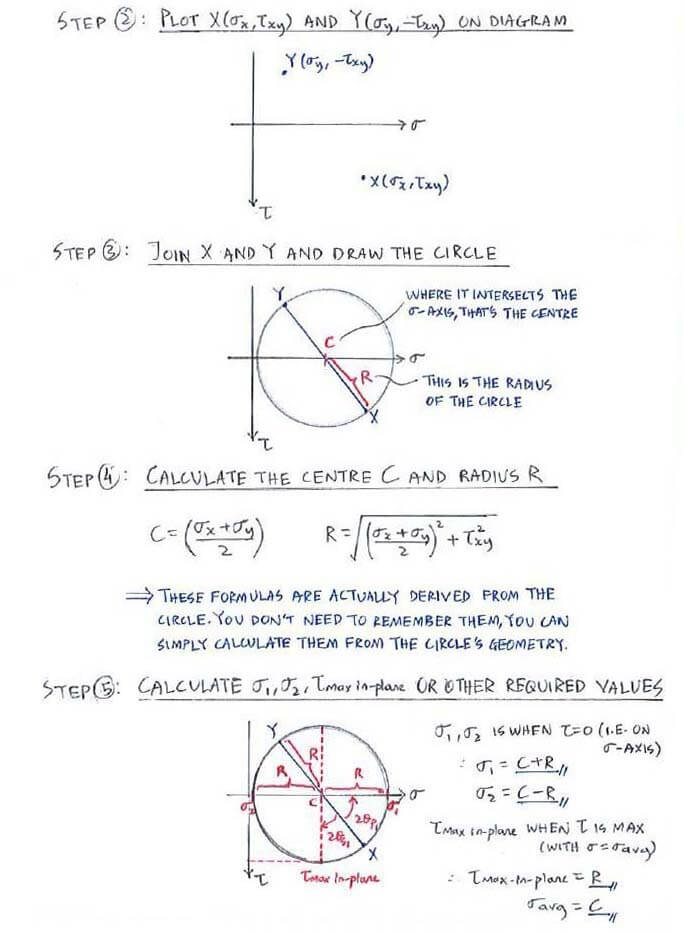 STEP ②: PLOT X(σx,τxy) AND Y(σy,-τxy) ON DIAGRAM
Y(σy, -τxy)
σ
X(σx,τxy)
τ
STEP ③: JOIN X AND Y AND DRAW THE CIRCLE
Y
WHERE IT INTERSECTS THE
σ-AXIS, THAT'S THE CENTRE
C
σ
R
THIS IS THE RADIUS
OF THE CIRCLE
X
τ
STEP ④: CALCULATE THE CENTRE C AND RADIUS R
C=((σx+σy)/2) R=√(((σx+σy)/2)²+τxy²)
⇒ THESE FORMULAS ARE ACTUALLY DERIVED FROM THE
CIRCLE. YOU DON'T NEED TO REMEMBER THEM, YOU CAN
SIMPLY CALCULATE THEM FROM THE CIRCLE'S GEOMETRY.
STEP ⑤: CALCULATE σ1,σ2,τmax in-plane OR OTHER REQUIRED VALUES
Y
R
R R
σ2 C σ1 σ
2θs1 2θp1
X
τ τmax in-plane
σ1,σ2 IS WHEN τ=0 (I.E. ON
σ-AXIS)
∴ σ1 = C+R//
σ2 = C-R//
τmax in-plane WHEN τ IS MAX
(WITH σ=σavg)
∴ τmax-in-plane = R//
σavg = C//